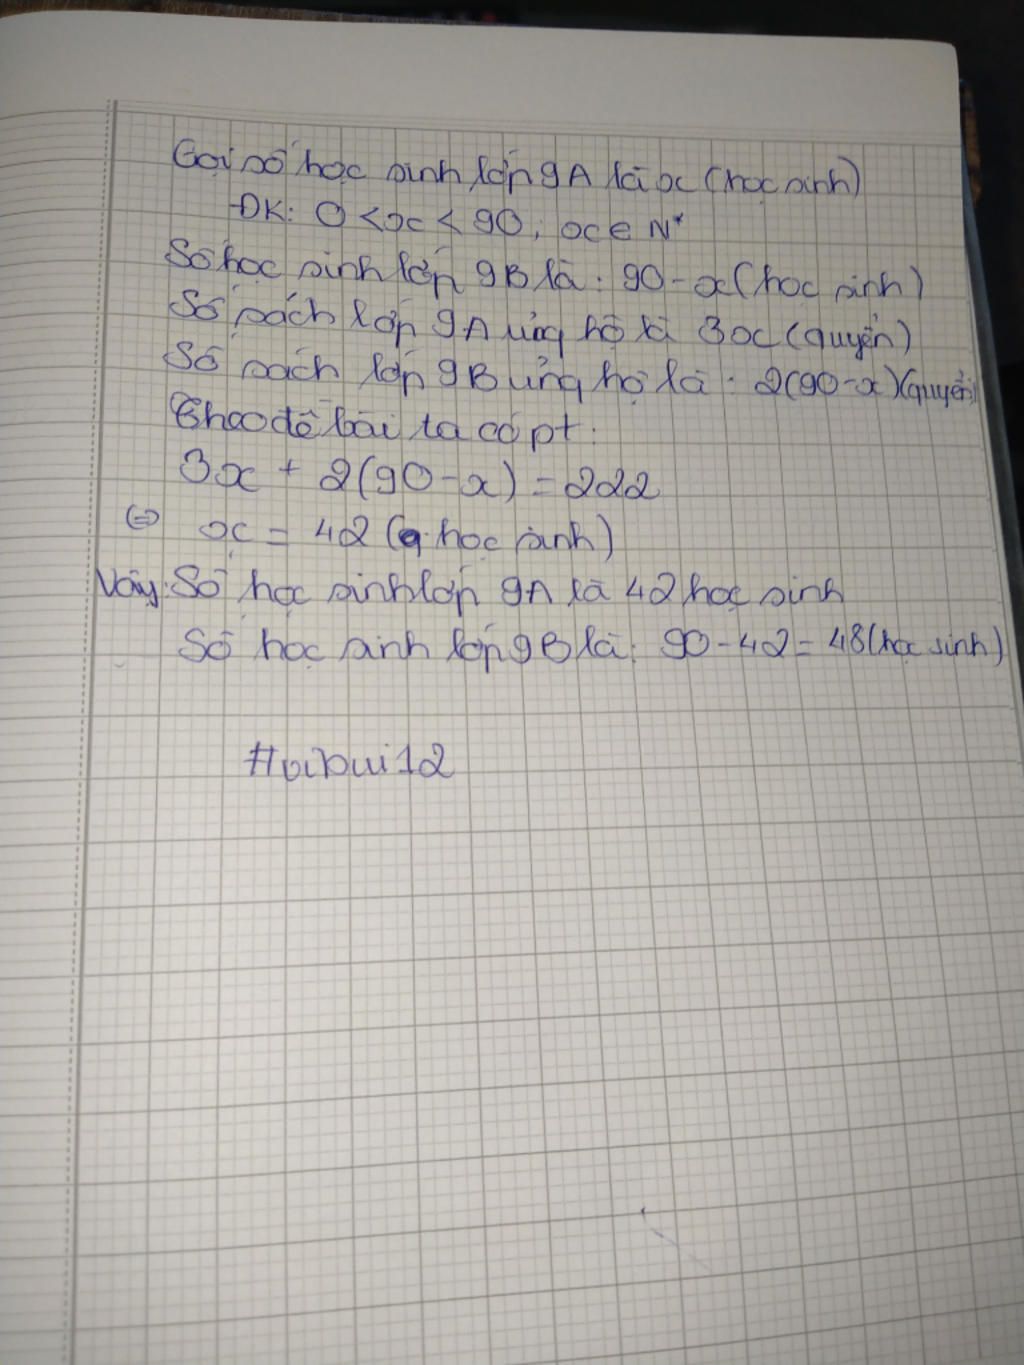 Gọi số học sinh lớp 9A là x (học sinh)
ĐK: 0 < x < 90, x ∈ N*
Số học sinh lớp 9B là: 90 - x (học sinh)
Số sách lớp 9A ủng hộ là 3x (quyển)
Số sách lớp 9B ủng hộ là: 2(90-x)(quyển)
Theo đề bài ta có pt:
3x + 2(90-x) = 222
⇔ x = 42 (học sinh)
Vậy: Số học sinh lớp 9A là 42 học sinh
Số học sinh lớp 9B là: 90 - 42 = 48 (học sinh)